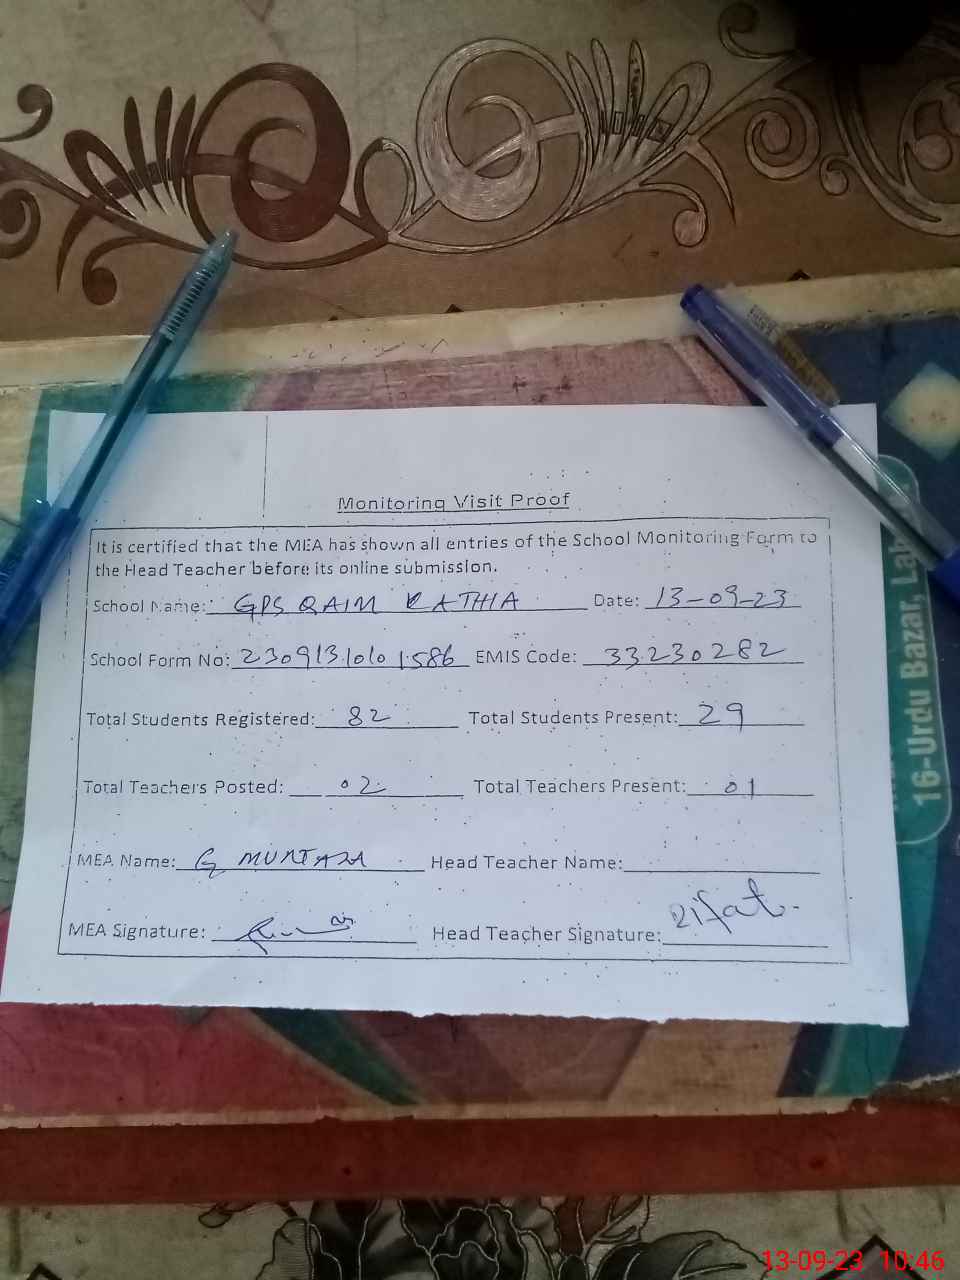 Monitoring Visit Proof
It is certified that the MEA has shown all entries of the School Monitoring Form to
the Head Teacher before its online submission.
School Name: GPS QAIM KATHIA Date: 13-09-23
School Form No: 2309131010 1586 EMIS Code: 33230282
Total Students Registered: 82 Total Students Present: 29
Total Teachers Posted: 02 Total Teachers Present: 01
MEA Name: G MURTAZA Head Teacher Name:
MEA Signature: Head Teacher Signature: Rifat.
16-Urdu Bazar,
13-09-23 10:46